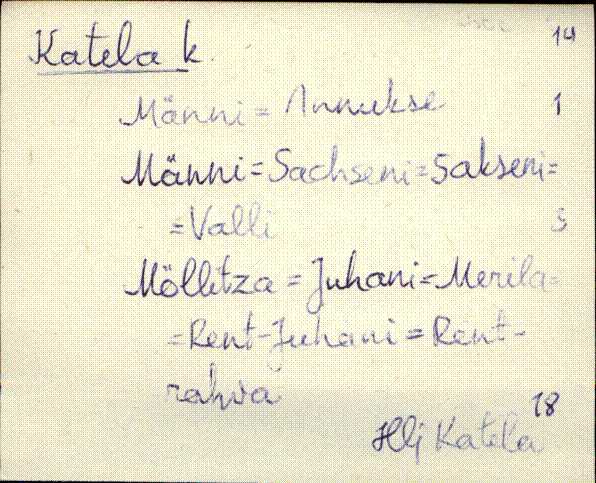 Katela k. 14
Männi = Annukse 1
Männi = Sachseni = Sakseni =
= Valli 5
Möllitza = Juhani = Merila =
= Rent-Juhani = Rent-
rahva 18
Hlj Katela